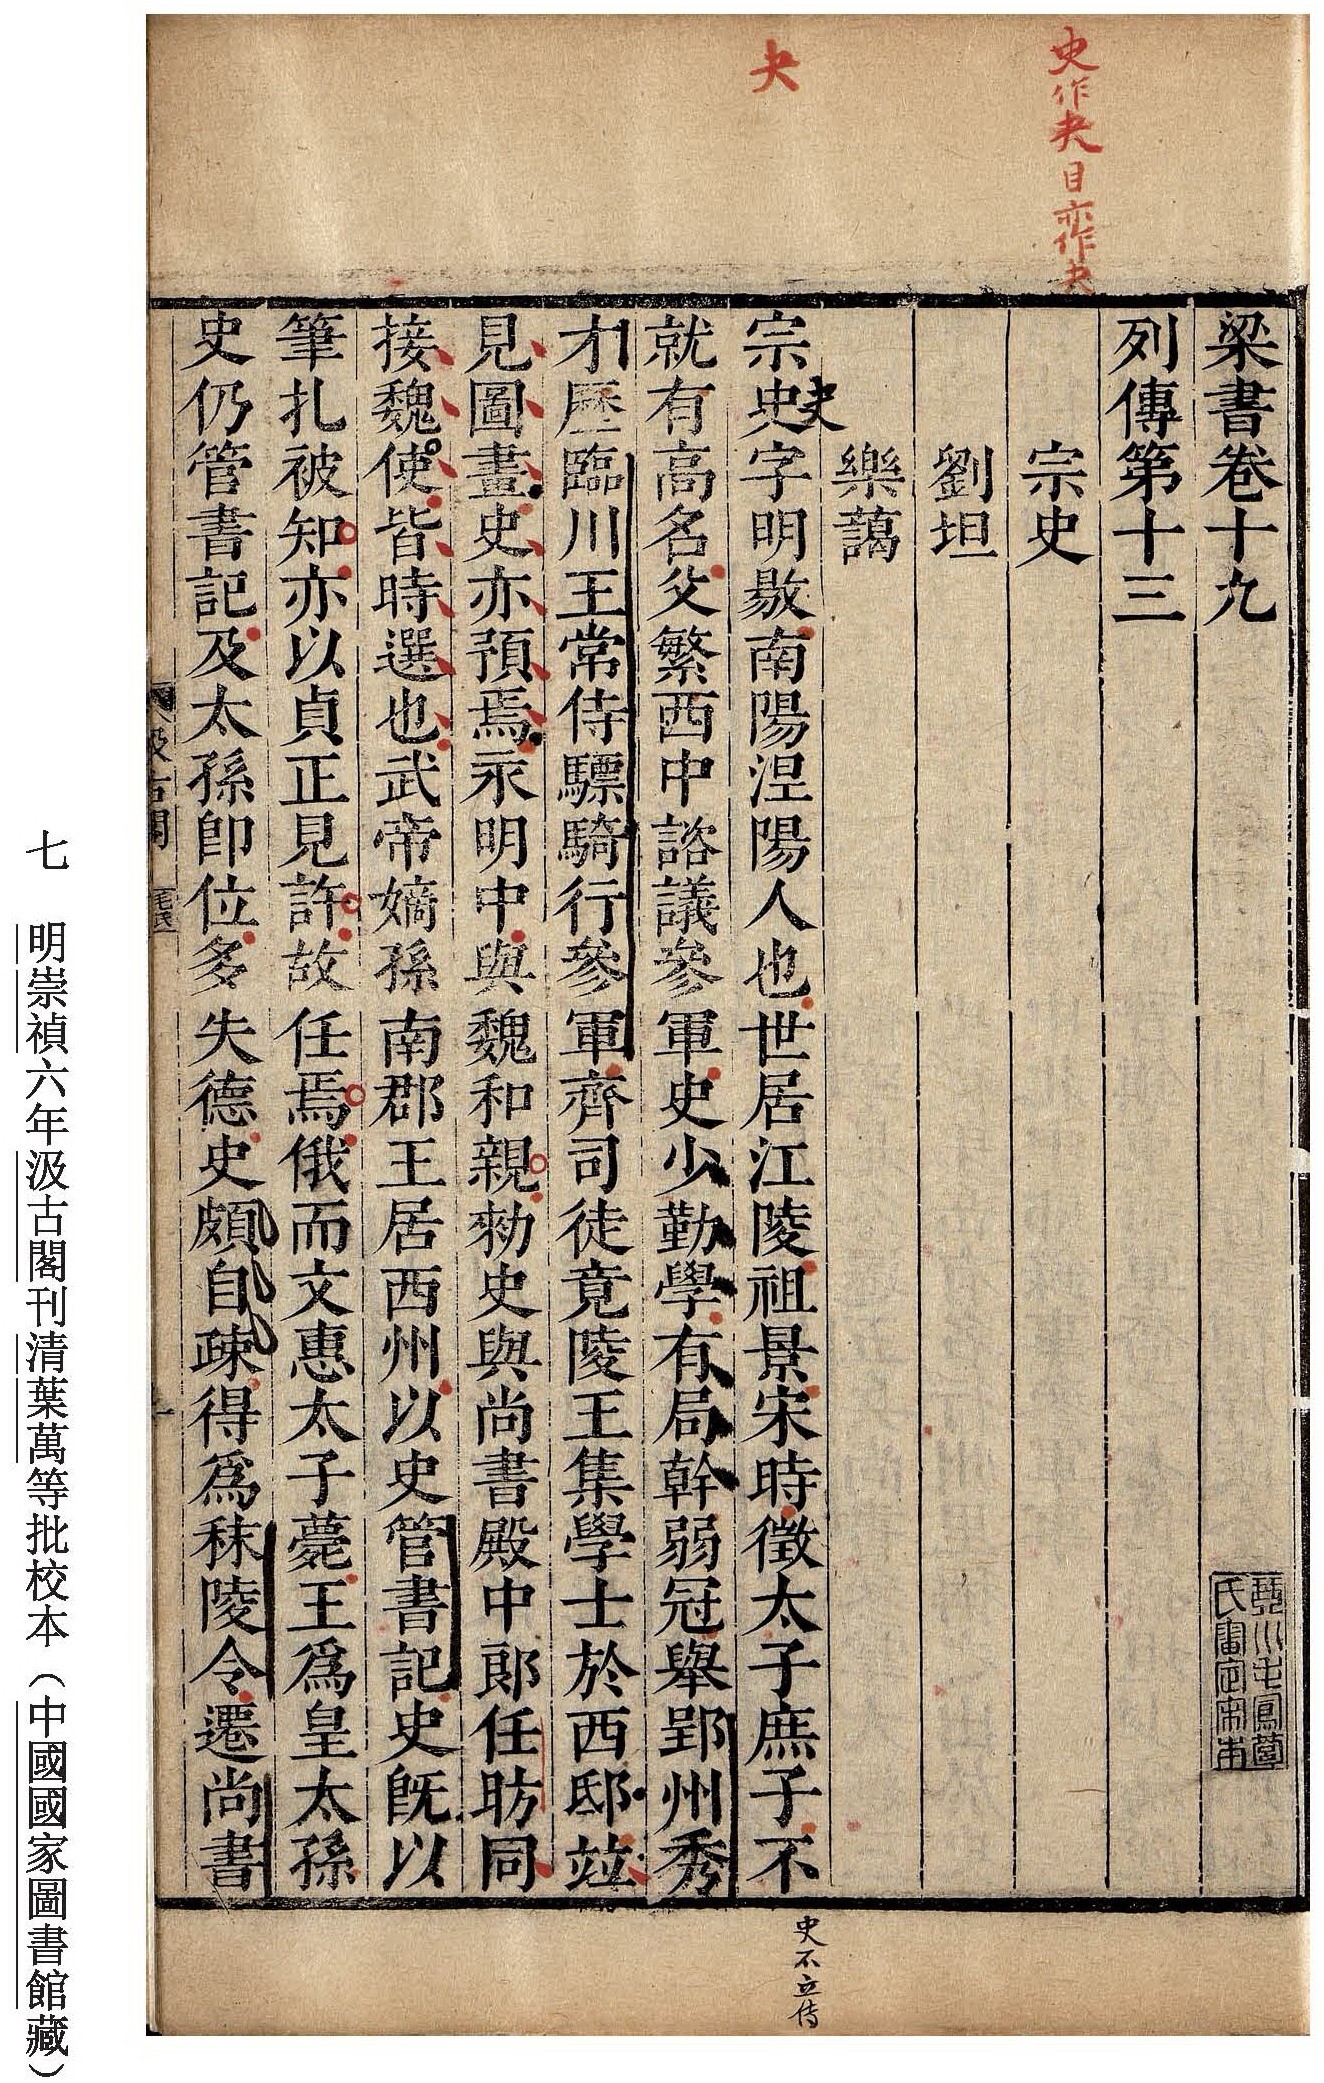 史作夬目亦作夬
夬
梁書卷十九
列傳第十三
宗史
劉坦
樂藹
宗史字明敭南陽涅陽人也世居江陵祖景宋時徵太子庶子不
夬
就有高名父繁西中諮議參軍史少勤學有局幹弱冠舉郢州秀
才歷臨川王常侍驃騎行參軍齊司徒竟陵王集學士於西邸竝
見圖畫史亦預焉永明中與魏和親勑史與尚書殿中郎任昉同
接魏使皆時選也武帝嫡孫南郡王居西州以史管書記史旣以
筆札被知亦以貞正見許故任焉俄而文惠太子薨王爲皇太孫
史仍管書記及太孫卽位多失德史頗自疎得爲秣陵令遷尚書
史不立傳
汲古閣
毛氏
七　明崇禎六年汲古閣刊清葉萬等批校本（中國國家圖書館藏）